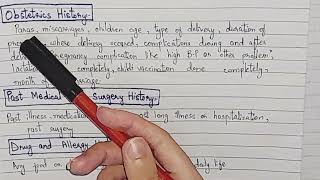 Obstetrics History:-
Paras, miscarriages, children age, type of delivery, duration of
where delivery occured, complications during and after
pregnancy complication like high B.P or other problem
completely, child vaccination done completely,
month
Past Medical Surgery History:-
Past illness, medication long illness or hospitalization,
past surgery
Drug and Allergy
Any food or daily life